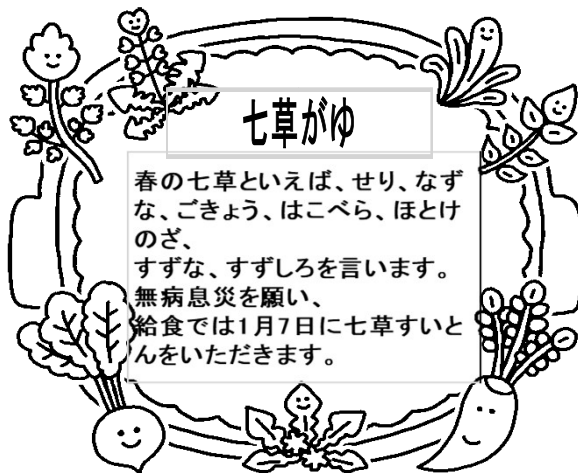 七草がゆ
春の七草といえば、せり、なず
な、ごきょう、はこべら、ほとけ
のざ、
すずな、すずしろを言います。
無病息災を願い、
給食では1月7日に七草すいと
んをいただきます。